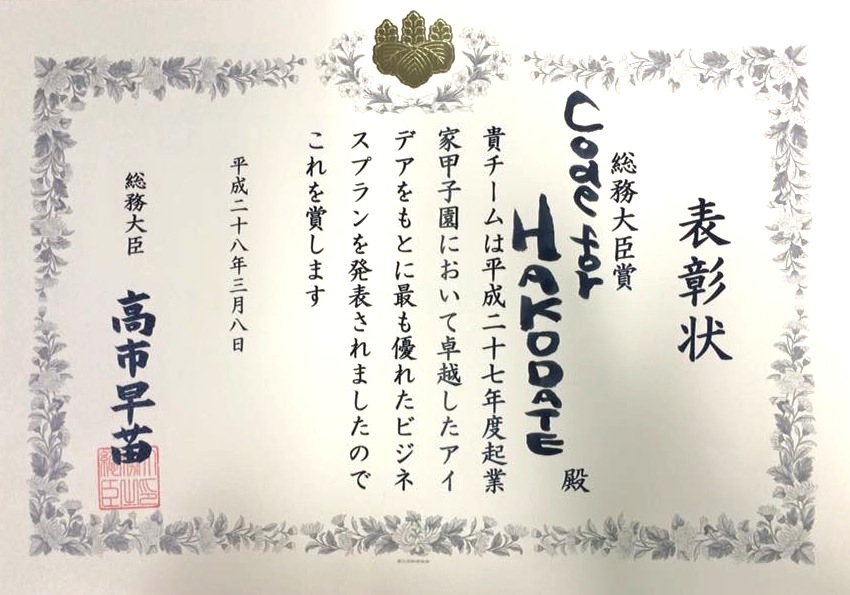 表彰状
総務大臣賞
Code for
HAKODATE 殿
貴チームは平成二十七年度起業
家甲子園において卓越したアイ
デアをもとに最も優れたビジネ
スプランを発表されましたので
これを賞します
平成二十八年三月八日
総務大臣 高市早苗